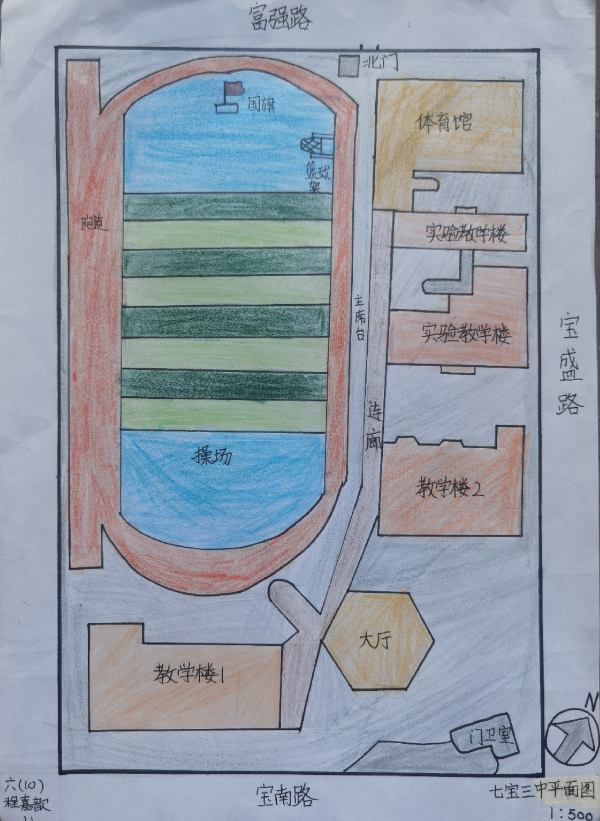 富强路
北门
国旗
体育馆
篮球
架
跑道
实验教学楼
主席台
实验教学楼
宝盛路
连廊
操场
教学楼2
大厅
教学楼1
N
门卫室
六(10)
程嘉歆
11
宝南路
七宝三中平面图
1:500